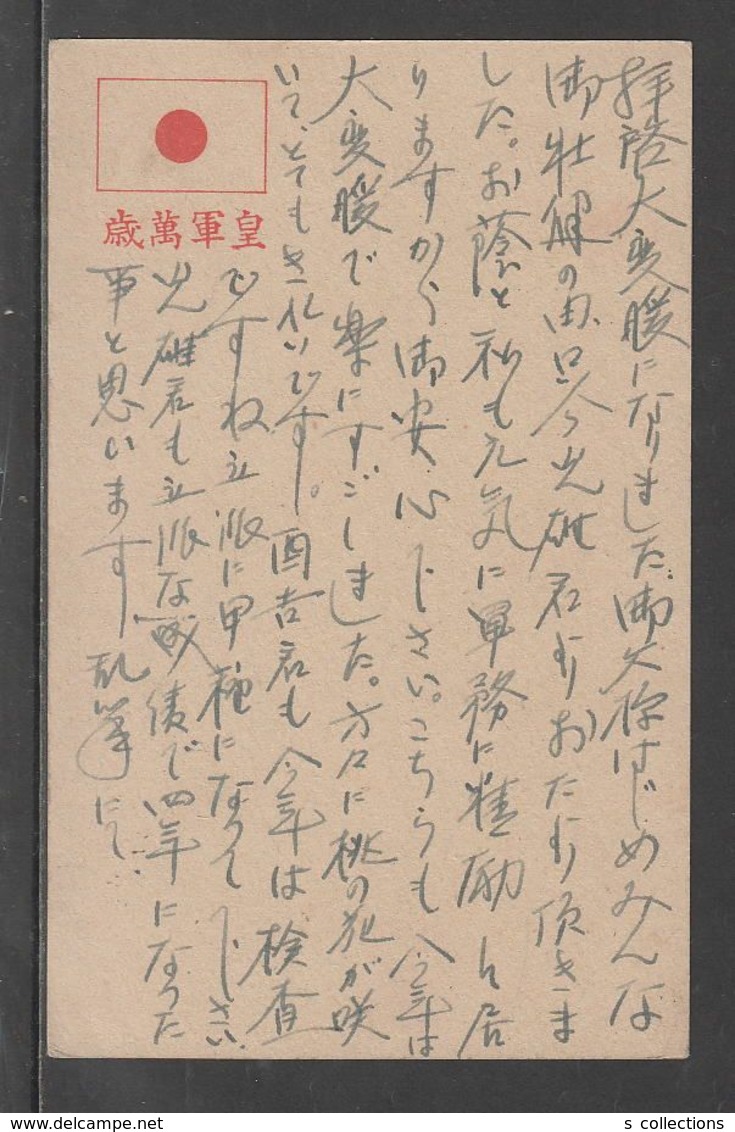 皇軍萬歳
拝啓大変暖になりました。御父様はじめみんな
御壮健の由只今光雄君よりおたより頂きま
した。お蔭と私も元気に軍務に精励し居
りますから御安心下さい。こちらも今年は
大変暖で楽にすごしました。方々に桃の花が咲
いて、とてもきれいです。酉吉君も今年は検査
ですね立派に甲種になって下さい
光雄君も立派な成績で四年になった
事と思います乱筆にて
s collections